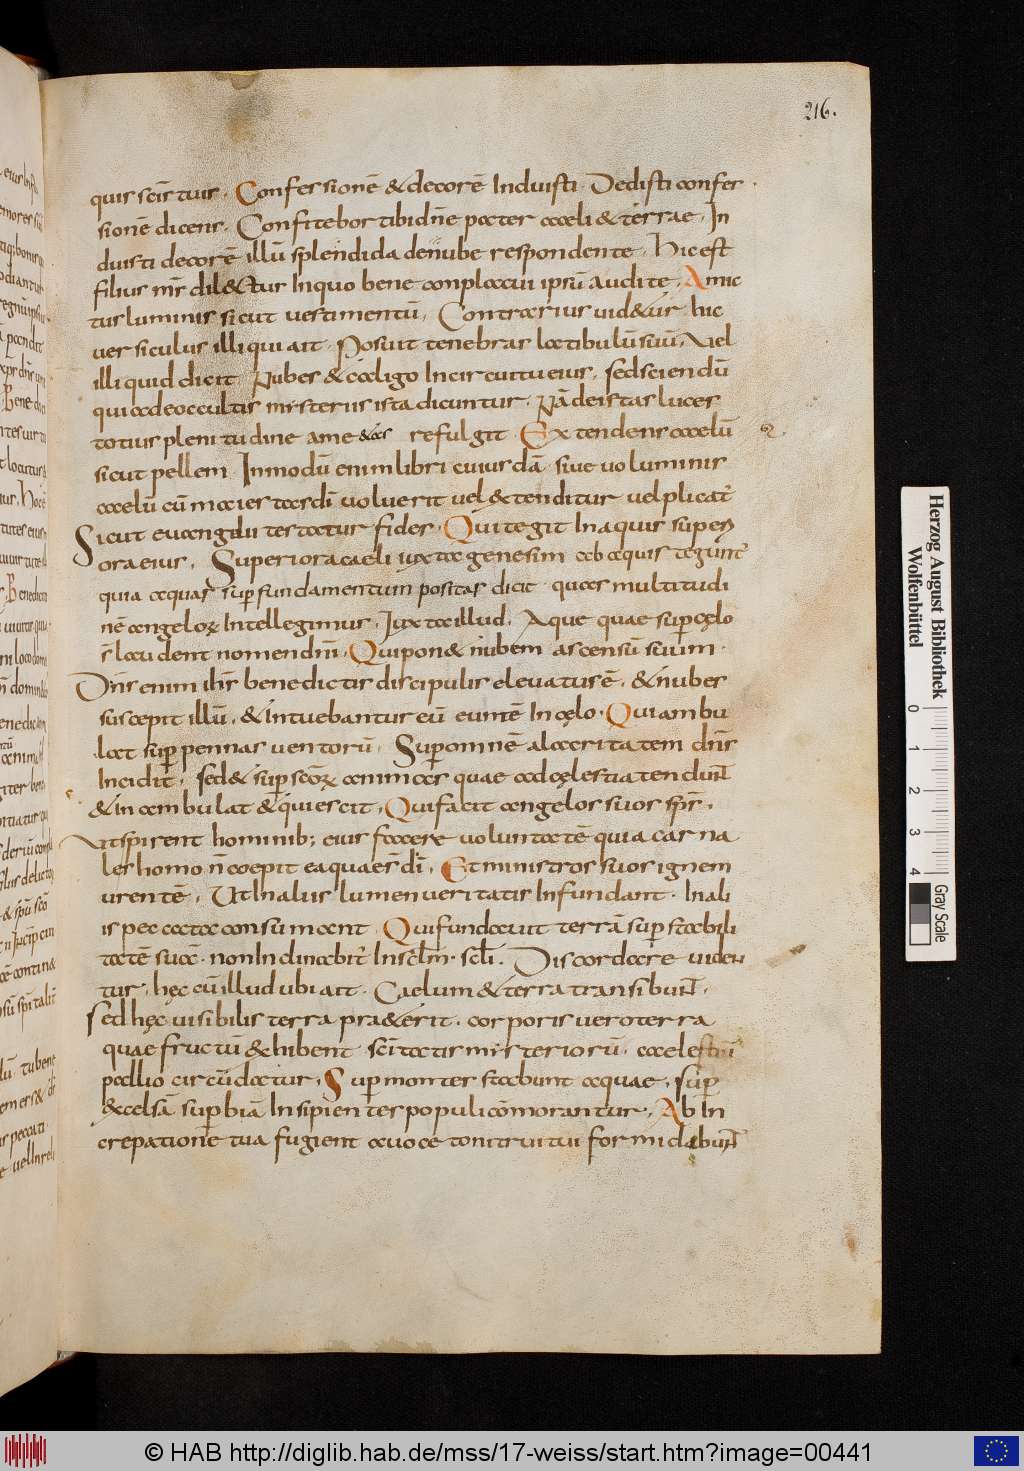 216.
quis scīs tuis. Confessionē & decorē Induisti. Dedisti confes
sionē dicens. Confitebor tibi dn̄e pater caeli & terrae. In
duisti decorē illū splendida denube respondente. Hic est
filius m̄s dil&tus In quo bene conplacui ipsū audite. Amic
tus luminis sicut uestimentū. Contrarius uid&ur hic
uersiculus illi qui ait. Posuit tenebras latibulū suū, Vel
illi quid dicit. Nubes & caligo In circuitu eius. sed sciendū
quia de occultis misteriis ista dicuntur. Nā deistas luces
totius plenitudine ame&as refulgit. Extendens caelū
sicut pellem. In modū enim libri cuiusdā siue uoluminis
caelū cū maiestas dī uoluerit uel &tenditur uel plicat̄
Sicut euangelii testatur fides. Qui tegit In aquis superi
ora eius. Superiora caeli iuxta genesim ab aquis tegunt̄
quia aquas sup fundamentum positas dicit quas multitudi
nē angeloꝝ Intellegimus. Iuxta illud. Aque quae sup cęlo
s̄ laudent nomen dn̄i. Qui pon& nubem ascensū suum.
Dn̄s enim ih̄s benedictis discipulis eleuatus ē. & nubes
suscepit illū. & intuebantur eū euntē In cęlo. Qui ambu
lat sup pennas uentorū. Sup omnē alacritatem dn̄s
Incidit. sed & sup scōꝝ animas quae ad cęlestia tendun̄t
& in ambulat & quiescit. Qui facit angelos suos sps̄.
Vt spirent hominib; eius facere uoluntatē quia carna
les homo n̄ coepit ea quae s̄ dī. Et ministros suos ignem
urentē. Ut In aliis lumen ueritatis Infundant. In ali
is peccata consumant. Qui fundauit terrā sup stabili
tatē suā. non Inclinabit̄ In sc̄lm̄. sc̄li. Discordare uiden
tur. hęc cū illud ubi ait. Caelum & terra transibun̄t.
sed hęc uisibilis terra pra&erit. corporis uero terra
quae fructū &hibent sc̄itatis misteriorū. caelestiū
pallio circūdatur. Sup montes stabunt aquae. sup
&celsā supbiā Insipientes populi cōmorantur. Ab In
crepatione tua fugient auoce tonitrui tui formidabun̄t
Herzog August Bibliothek
Wolfenbüttel
0 1 2 3 4
Gray Scale
© HAB http://diglib.hab.de/mss/17-weiss/start.htm?image=00441